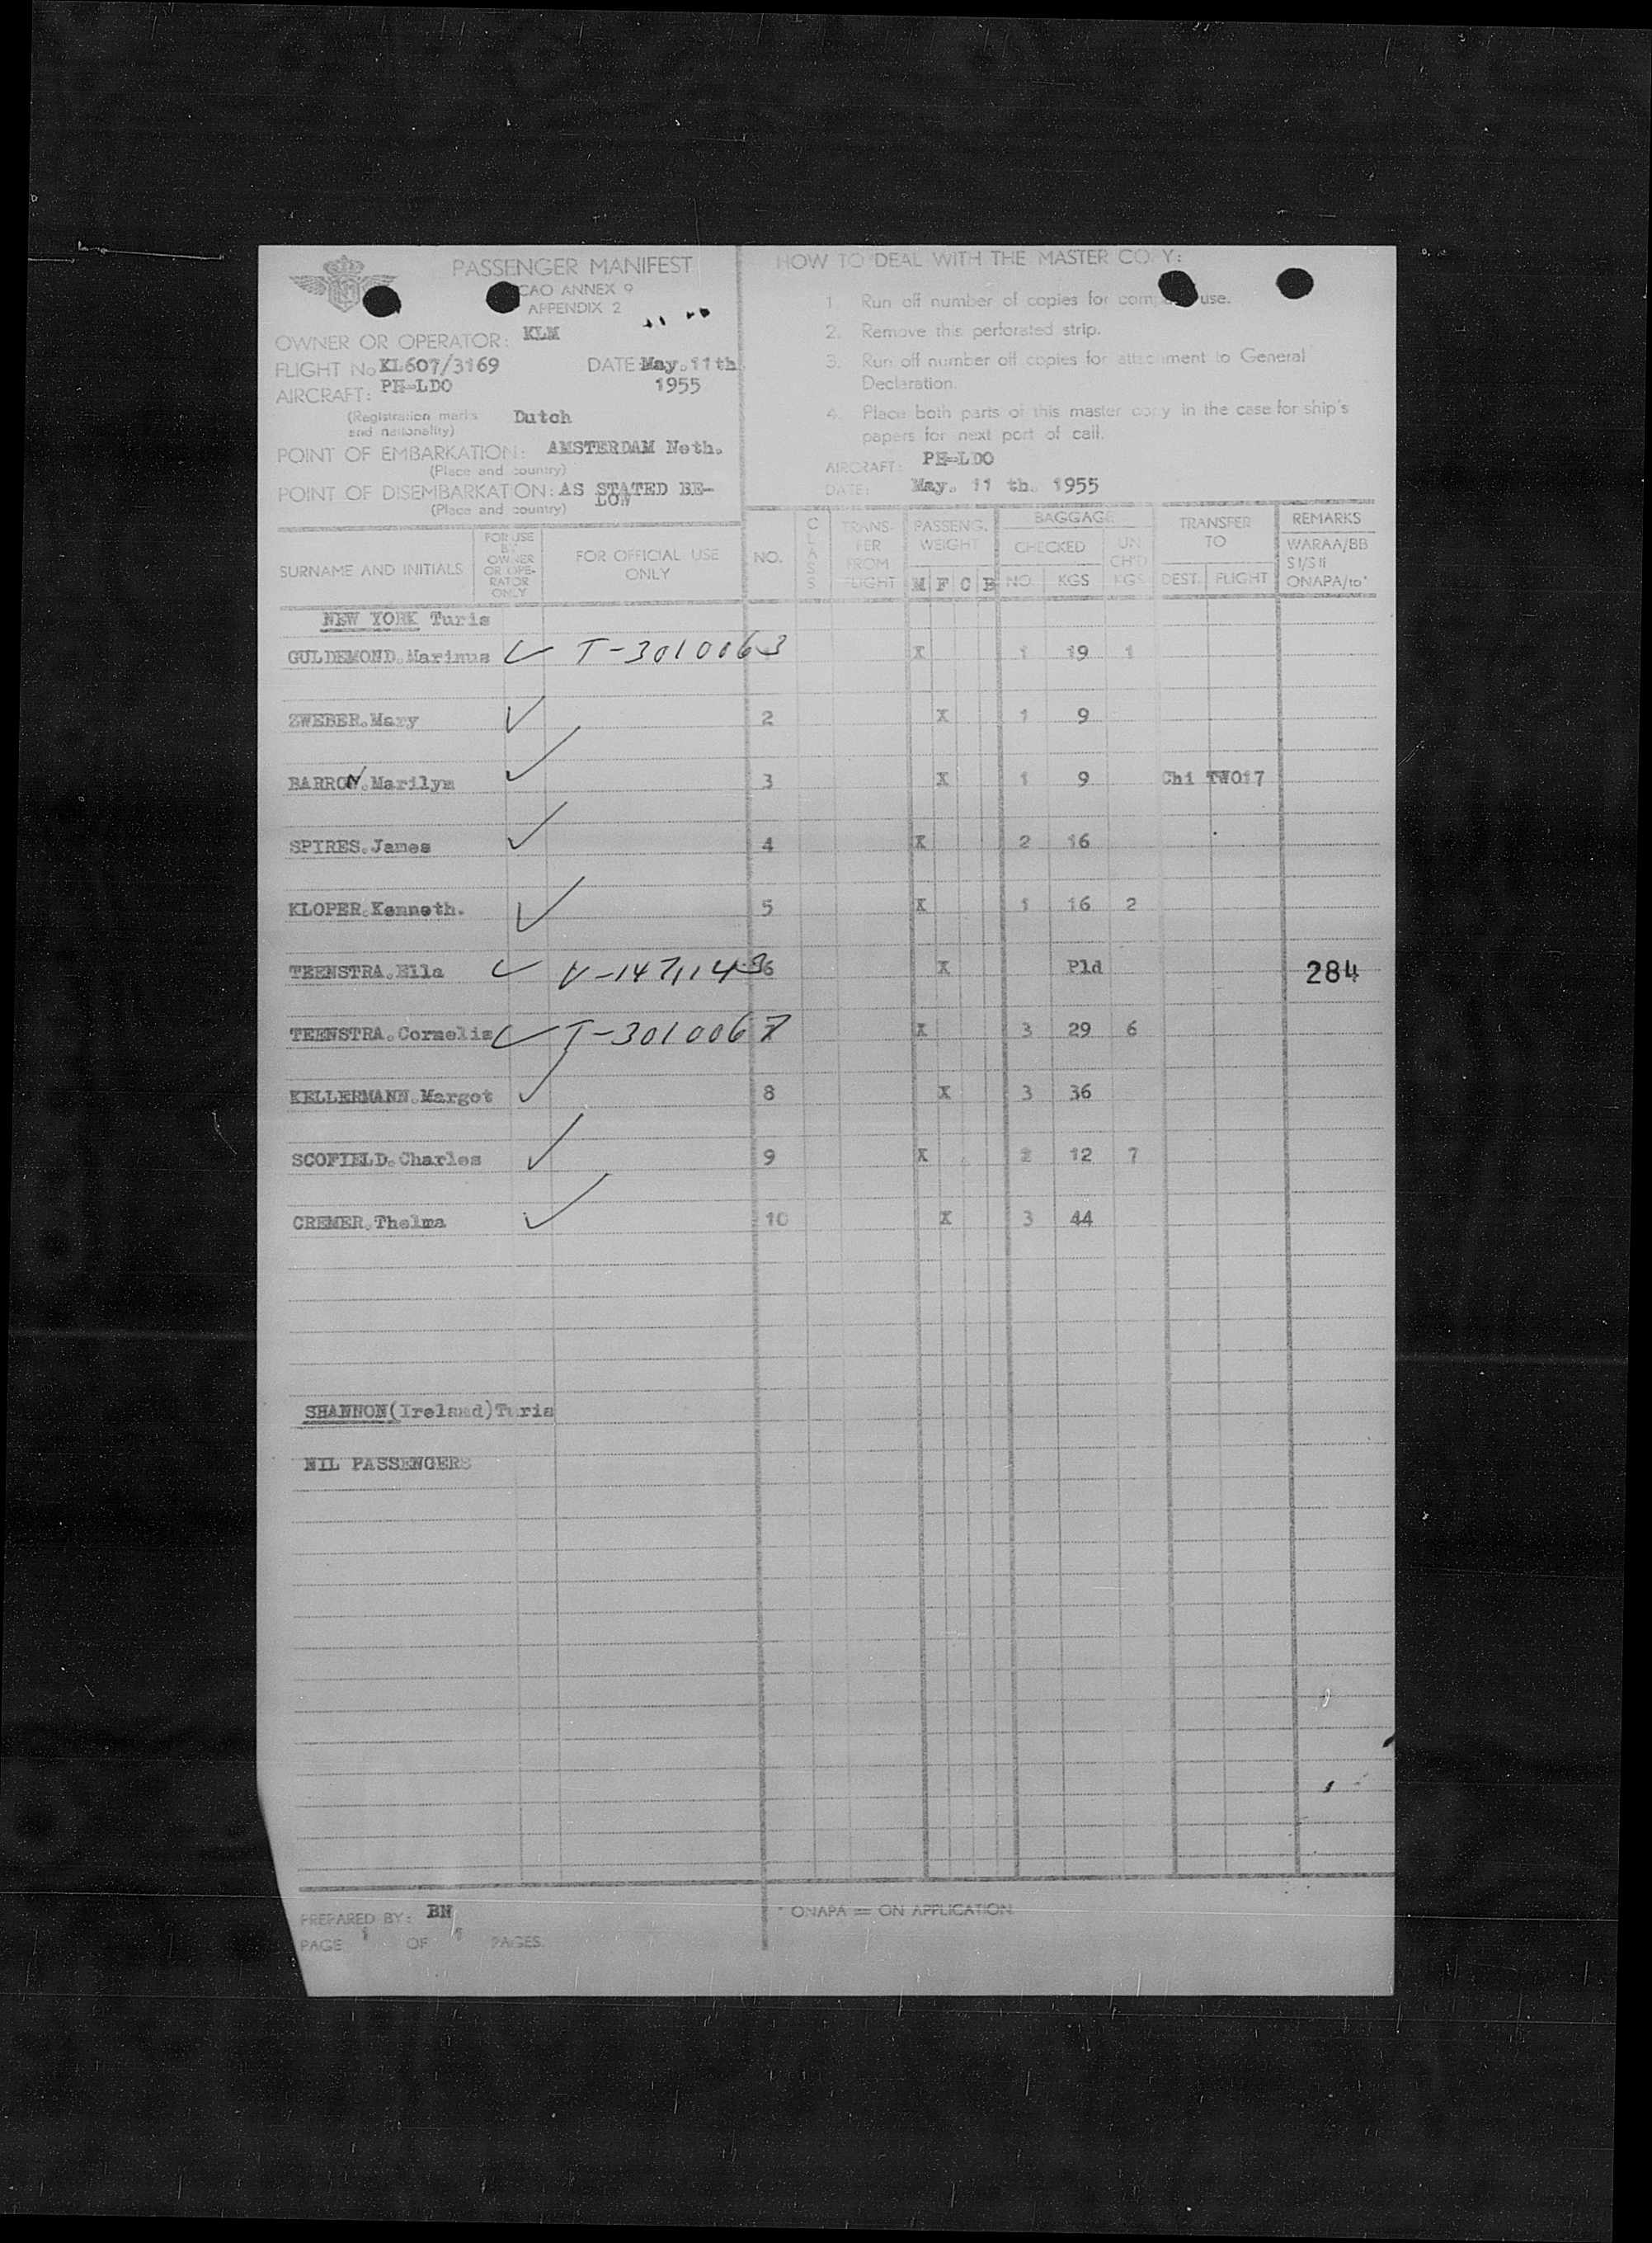 PASSENGER MANIFEST
ICAO ANNEX 9
APPENDIX 2
OWNER OR OPERATOR: KLM
FLIGHT No KL607/3169 DATE: May.11th
1955
AIRCRAFT: PH-LDO
(Registration marks and nationality) Dutch
POINT OF EMBARKATION: AMSTERDAM Neth.
(Place and country)
POINT OF DISEMBARKATION: AS STATED BE-
LOW
(Place and country)
HOW TO DEAL WITH THE MASTER COPY:
1. Run off number of copies for company use.
2. Remove this perforated strip.
3. Run off number off copies for attachment to General
Declaration.
4. Place both parts of this master copy in the case for ship's
papers for next port of call.
AIRCRAFT: PH-LDO
DATE: May. 11 th. 1955
SURNAME AND INITIALS FOR USE BY OWNER OR OPERATOR ONLY FOR OFFICIAL USE ONLY NO. CLASS TRANSFER FROM FLIGHT PASSENG. WEIGHT M F C B BAGGAGE CHECKED NO. KGS UN CH'D KGS TRANSFER TO DEST. FLIGHT REMARKS WARAA/BB SI/SII ONAPA/to*
NEW YORK Turis
GULDEMOND.Marinus T-3010063 X 1 19 1
ZWEBER.Mary 2 X 1 9
BARRON.Marilym 3 X 1 9 Chi TWO17
SPIRES.James 4 X 2 16
KLOPER.Kenneth. 5 X 1 16 2
TEENSTRA.Ella V-147,143 6 X Pld 284
TEENSTRA.Cornelis T-3010067 X 3 29 6
KELLERMANN.Margot 8 X 3 36
SCOFIELD.Charles 9 X 12 7
CREMER.Thelma 10 X 3 44
SHANNON(Ireland)Turis
NIL PASSENGERS
PREPARED BY: BN
PAGE 1 OF 1 PAGES.
* ONAPA = ON APPLICATION